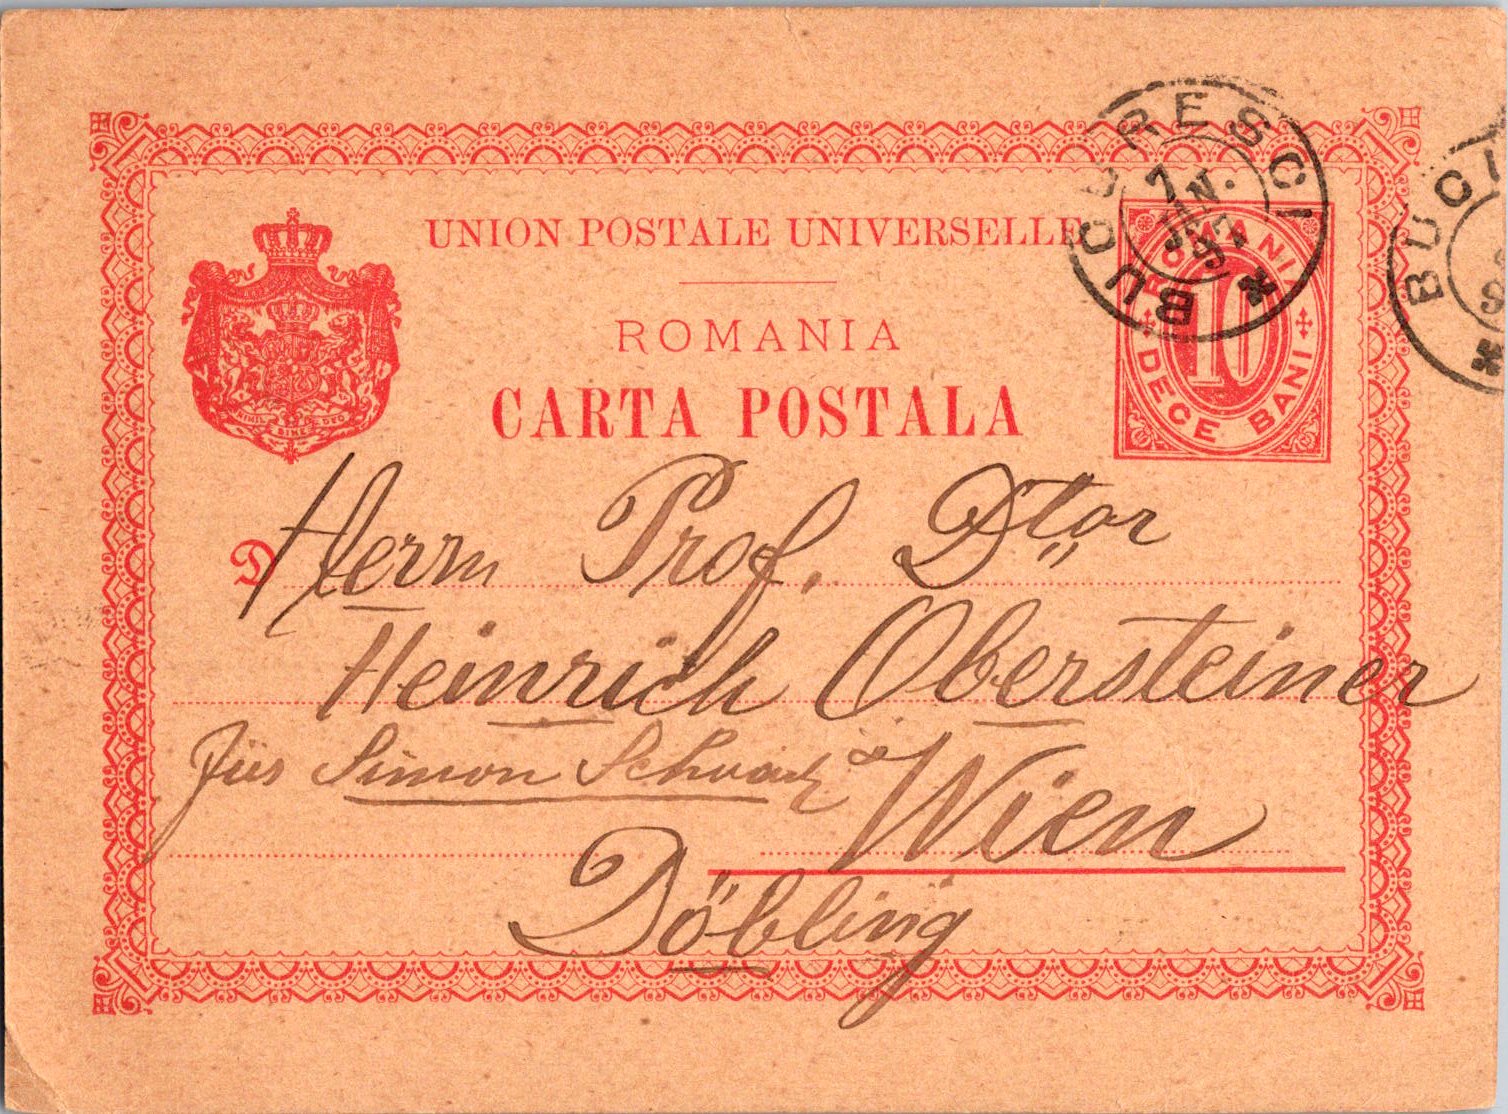 UNION POSTALE UNIVERSELLE
ROMANIA
CARTA POSTALA
ROMANIA
10
DECE BANI
BUCURESCI
7
IUN.
97
BUC
NIHIL SINE DEO
D
Herrn Prof. Dtor
Heinrich Obersteiner
für Simon Schwarz
Wien
Döbling